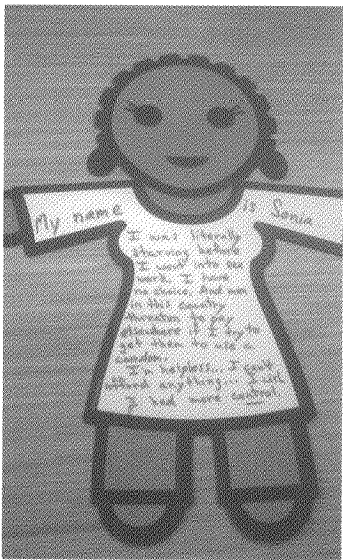 My name is Sonia
I was literally
starving before
I went into sex
work. I have
no choice. And men
in this country
threaten to pay
elsewhere if I try to
get them to use a
condom.
I'm helpless... I can't
afford anything... I wish
I had more control